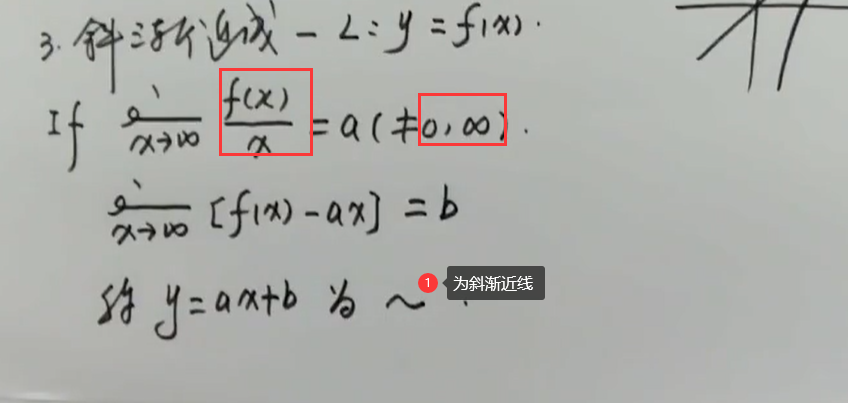 3. 斜渐近线 - L: y = f(x).
If lim x→∞ f(x)/x = a (≠0, ∞).
lim x→∞ [f(x) - ax] = b
称 y = ax+b 为 ~ .
1 为斜渐近线